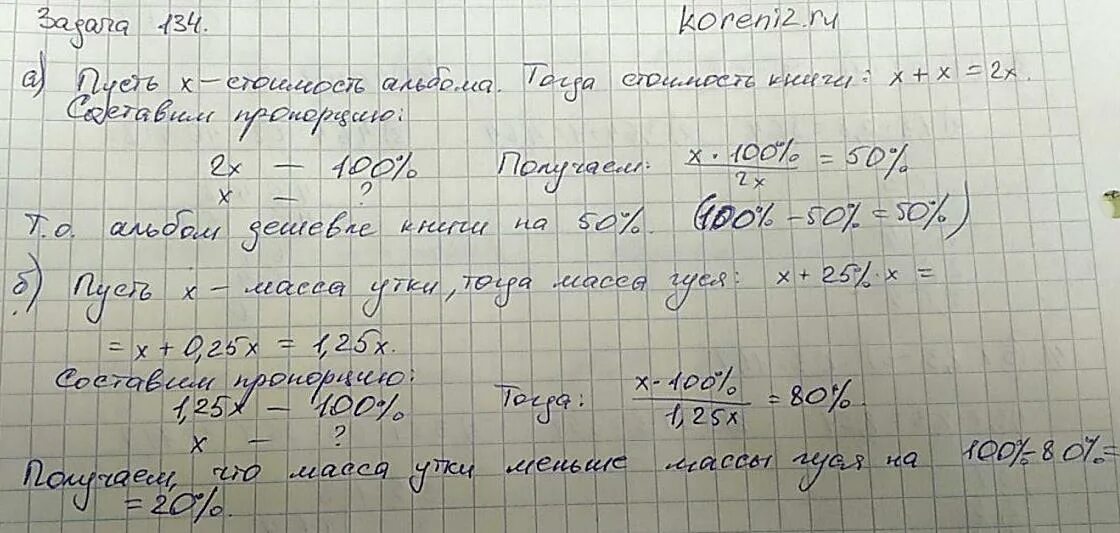 Задача 134.
koreni2.ru
а) Пусть x – стоимость альбома. Тогда стоимость книги: x + x = 2x.
Составим пропорцию:
2x — 100% Получаем: x · 100% / 2x = 50%
x — ?
Т.о. альбом дешевле книги на 50%. (100% – 50% = 50%)
б) Пусть x – масса утки, тогда масса гуся: x + 25% · x =
= x + 0,25x = 1,25x.
Составим пропорцию:
1,25x — 100% Тогда: x · 100% / 1,25x = 80%.
x — ?
Получаем, что масса утки меньше массы гуся на 100% - 80% =
= 20%.